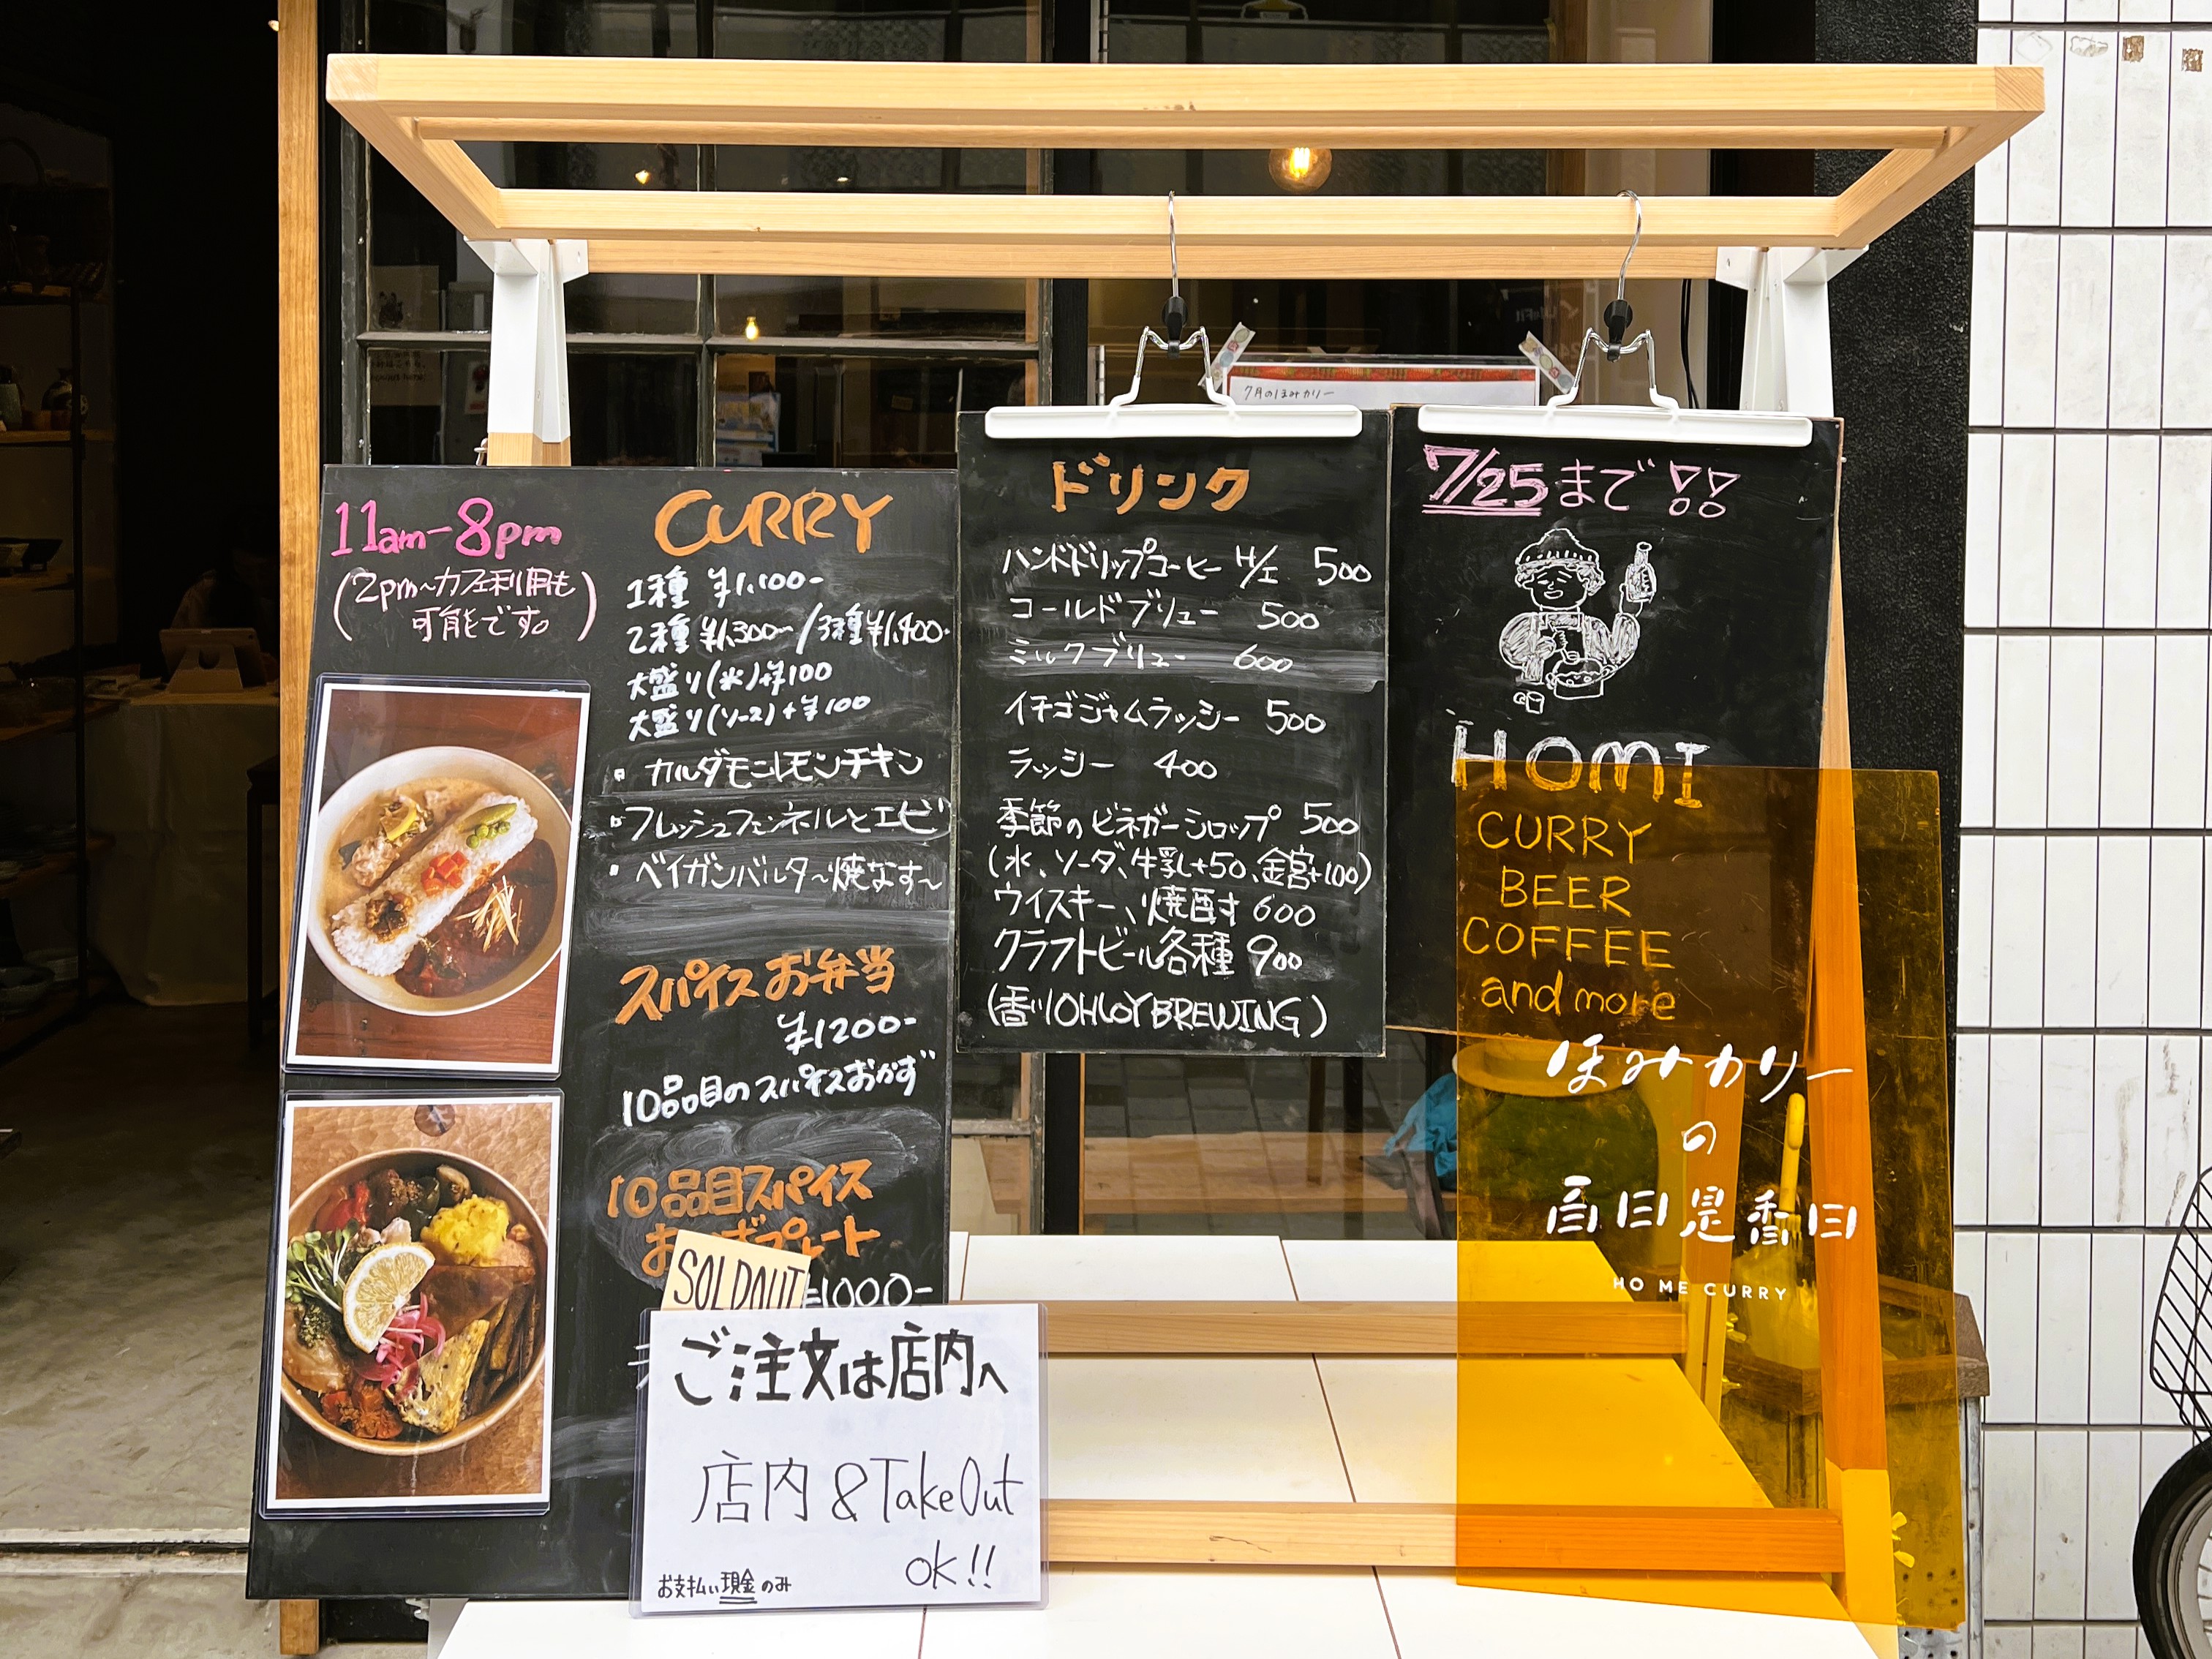 7月のほみカリー
11am-8pm
(2pm~カフェ利用も
可能です。)
CURRY
1種 ¥1,100-
2種 ¥1,300-/3種¥1,400-
大盛り(米)+¥100
大盛り(ソース)+¥100
・カルダモンレモンチキン
・フレッシュフェンネルとエビ
・ベイガンバルタ~焼なす~
スパイスお弁当
¥1200-
10品目のスパイスおかず
10品目スパイス
おかずプレート
SOLDOUT
1000-
ご注文は店内へ
店内&TakeOut
OK!!
お支払い現金のみ
ドリンク
ハンドドリップコーヒー H/I 500
コールドブリュー 500
ミルクブリュー 600
イチゴジャムラッシー 500
ラッシー 400
季節のビネガーシロップ 500
(水、ソーダ、牛乳+50、金宮+100)
ウイスキー、焼酎 600
クラフトビール各種 900
(香川OHLOY BREWING)
7/25まで!!
HOMI
CURRY
BEER
COFFEE
and more
ほみカリー
の
HO ME CURRY